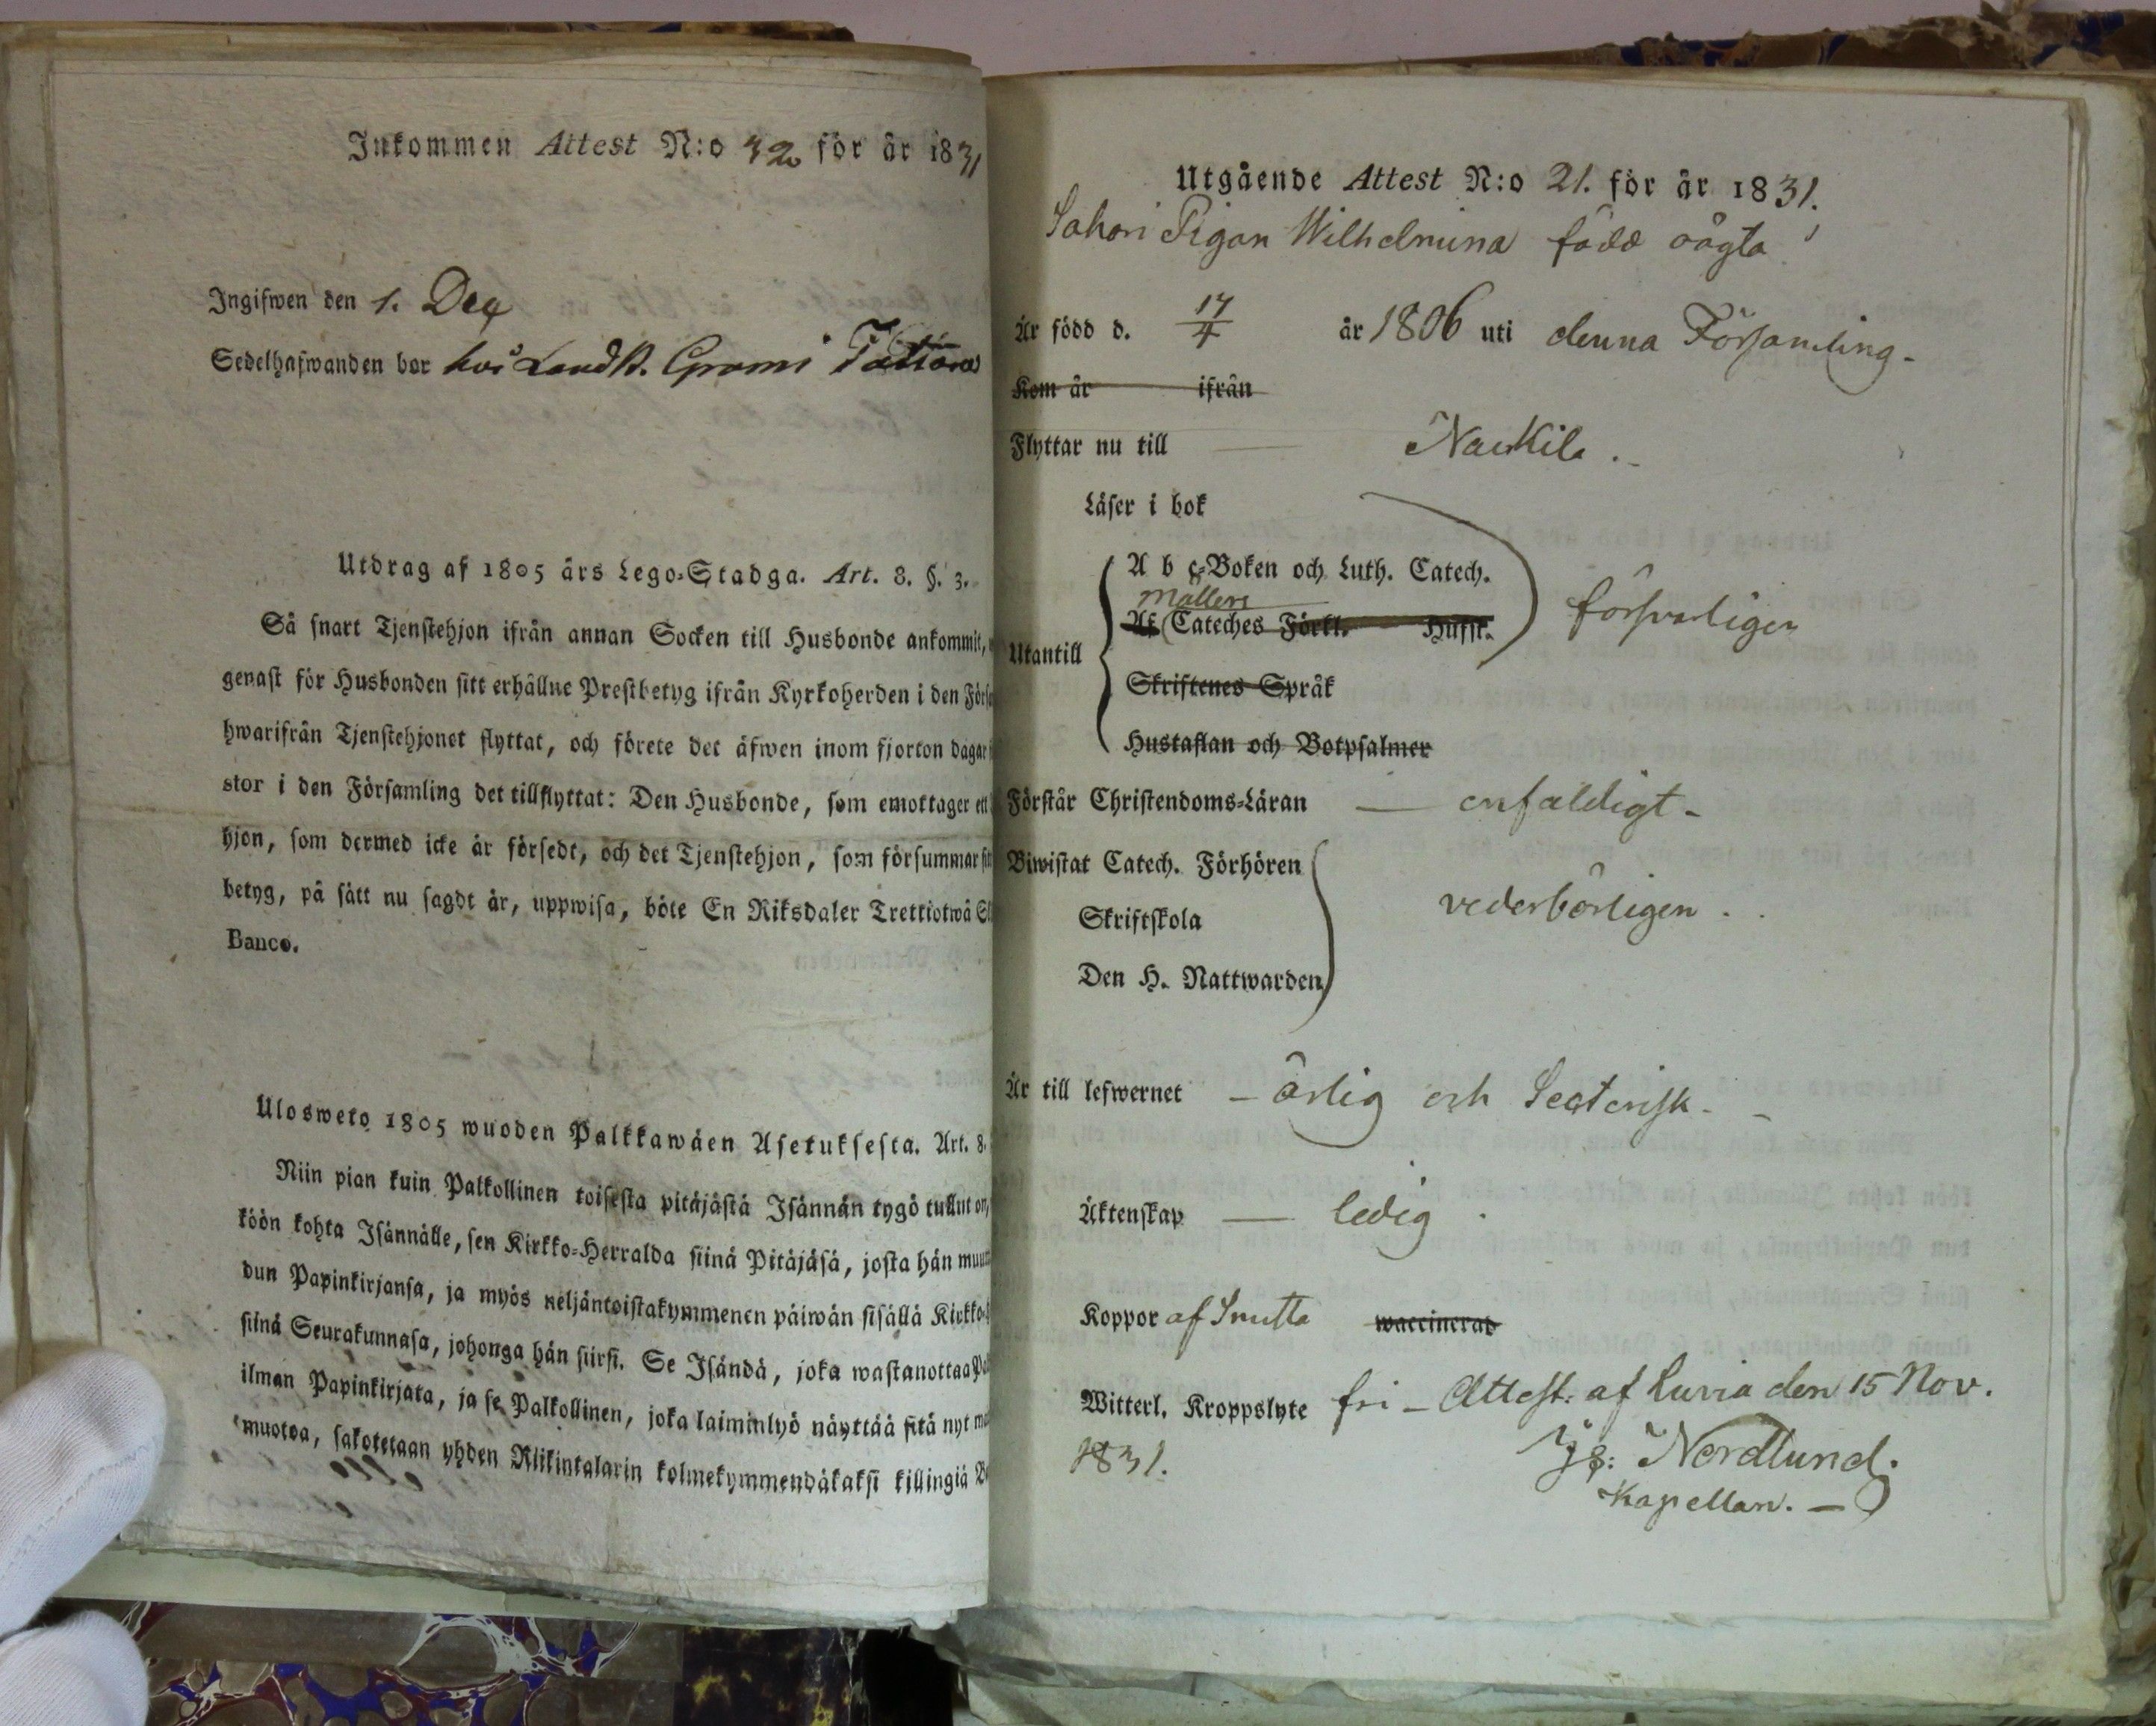 Inkommen Attest N:o 32 för år 1831
Ingifwen den 1. Dec
Sedelhafwanden bor hos Landb. Tattara
Utdrag af 1805 års Lego-Stadga. Art. 8. §. 3.
Så snart Tjenstehjon ifrån annan Socken till Husbonde ankommit,
genast för Husbonden sitt erhållne Prestbetyg ifrån Kyrkoherden i den Förs
hwarifrån Tjenstehjonet flyttat, och förete det äfwen inom fjorton dagar
stor i den Församling det tillflyttat: Den Husbonde, som emottager ett
hjon, som dermed icke är försedt, och det Tjenstehjon, som försummar sitt
betyg, på sätt nu sagdt är, uppwisa, böte En Riksdaler Trettiotwå
Banco.
Ulosweto 1805 wuoden Palkkawäen Asetuksesta. Art. 8.
Niin pian kuin Palkollinen toisesta pitäjästä Isännän tygö tullut on,
köön kohta Isännälle, sen Kirkko-Herralda siinä Pitäjäsä, josta hän muut
dun Papinkirjansa, ja myös neljäntoistakymmenen päiwän sisällä Kirkko-
siinä Seurakunnasa, johonga hän siirsi. Se Isändä, joka wastanottaa Pal
ilman Papinkirjata, ja se Palkollinen, joka laiminlyö näyttää sitä nyt
muotoa, sakotetaan yhden Riikintalarin kolmekymmendäkaksi killingiä B
Utgående Attest N:o 21. för år 1831.
Sahari Pigan Wilhelmina född oägta
Är född d. 17/4 år 1806 uti denna Församling.
Kom år ifrån
Flyttar nu till Nackila.
Läser i bok
Utantill
A b c-Boken och Luth. Catech.
Möllers
Af Cateches Förkl. Hufst.
försvarligen
Skriftenes Språk
Hustaflan och Botpsalmer
Förstår Christendoms-Läran — enfaldigt
Biwistat Catech. Förhören
Skriftskola
vederbörligen.
Den H. Nattwarden
Är till lefwernet — ärlig och Secterisk.
Äktenskap — ledig.
Koppor af Smitta waccinerad
Witterl. Kroppslyte fri — Attest: af Luvia den 15 Nov.
1831.
Js: Nordlund.
Kapellan.